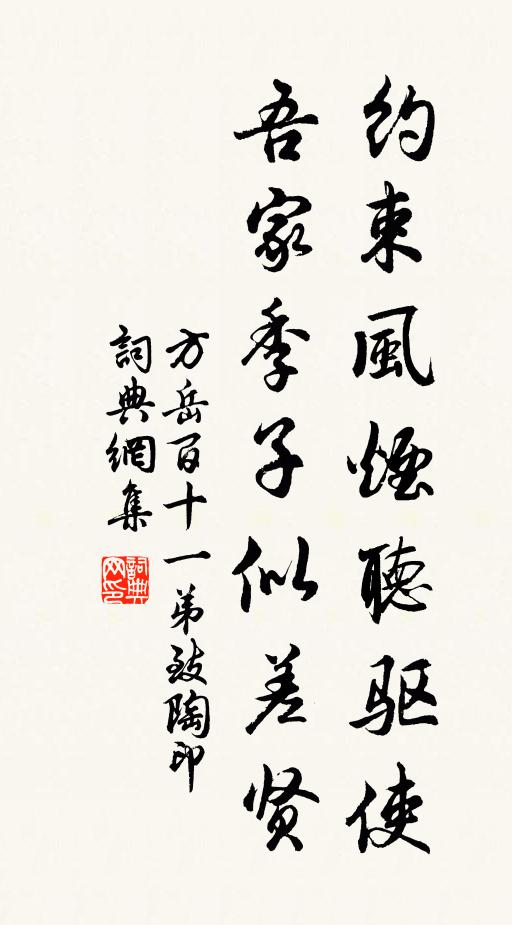 約束風煙聽驱使
吾家季子似差贤
方岳百十一弟致陶印
詞典網集
詞典网印